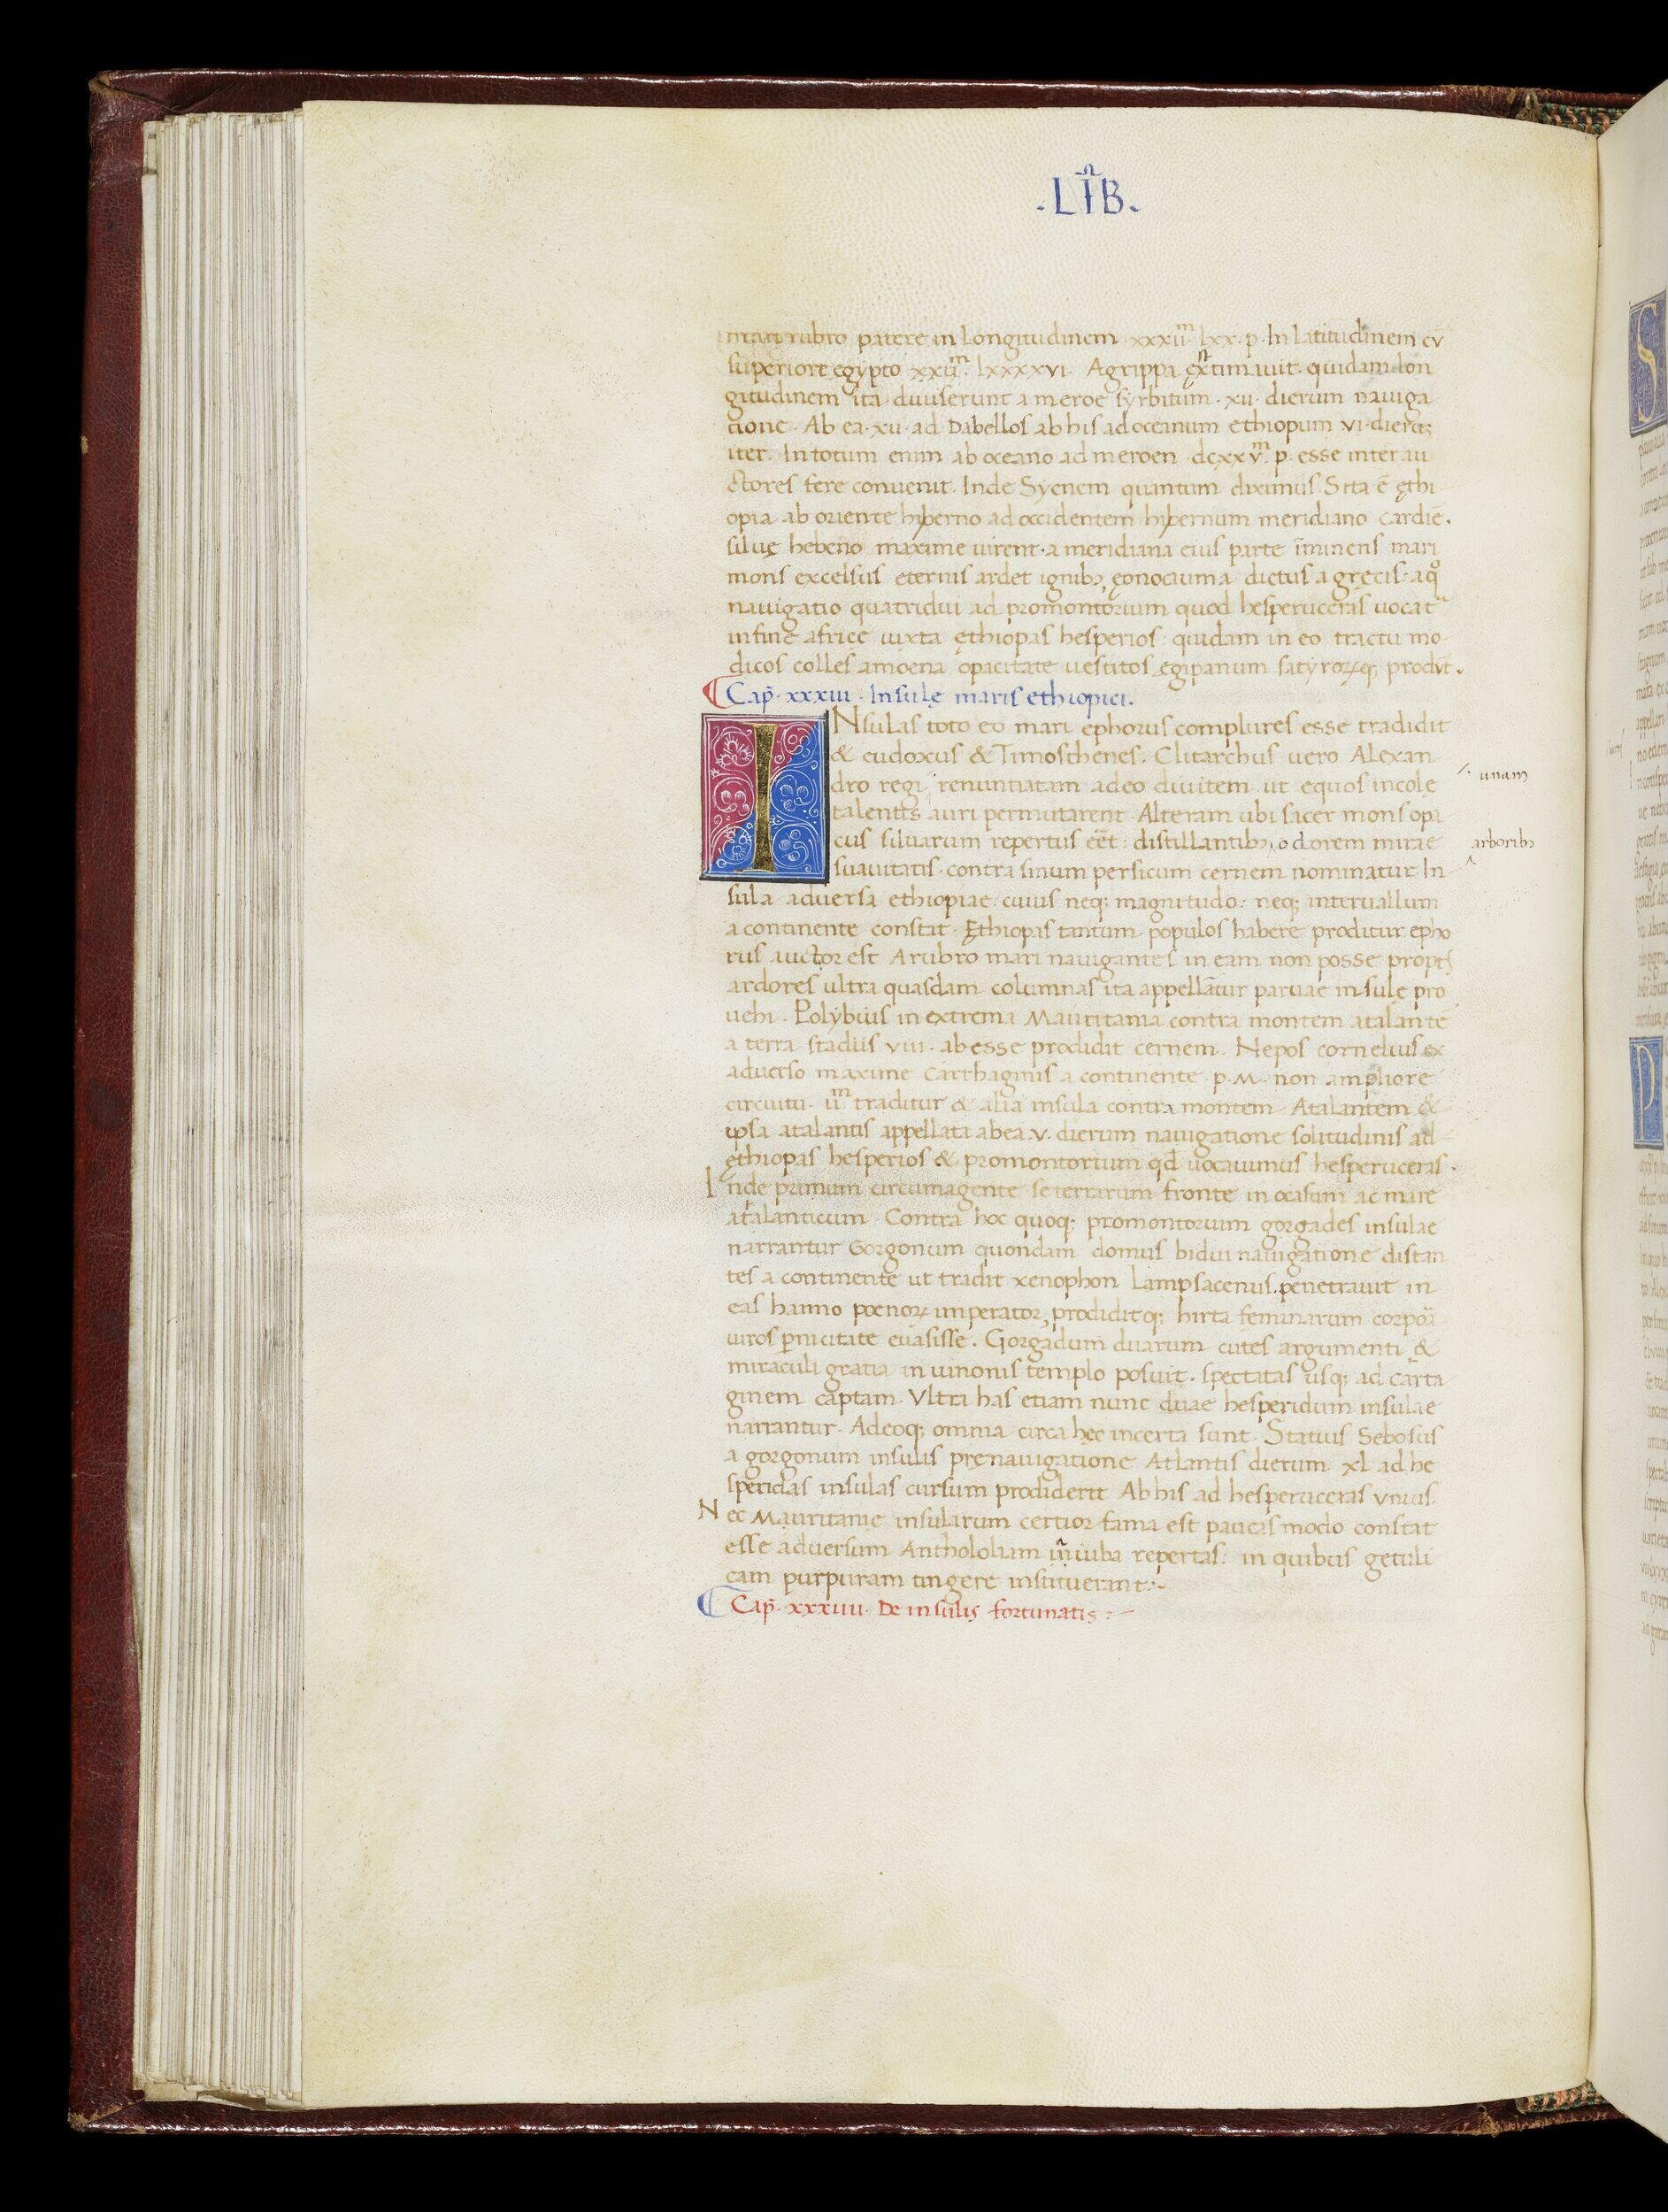 .LIB.
mari rubro patere in Longitudinem .xxxiiᵐ. lxx. p. In latitudinem cū
superiore egypto xxiiᵐ. lxxxxvi. Agrippa extimauit. quidam lon
gitudinem ita diuiserunt a meroe syrbitum. xii. dierum nauiga
tione. Ab ea. xii. ad Dabellos ab his ad oceanum ethiopum vi. dierꝝ
iter. In totum enim ab oceano ad meroen. dcxxvᵐ. p. esse inter au
ctores fere conuenit. Inde Syenem quantum diximus. Sita ē ęthi
opia ab oriente hiberno ad occidentem hibernum meridiano cardiē.
siluę hebeno maxime uirent. a meridiana eius parte īminens mari
mons excelsus eternis ardet ignibꝫ ęonociuma dictus a gręcis: a qͦ
nauigatio quatridui ad promontorium quod hesperuceras uocatʳ
in fine africe iuxta ęthiopas hesperios: quidam in eo tractu mo
dicos colles amoena opacitate uestitos egipanum satyrorꝝqꝫ prodūt.
Cap̄. xxxiii. Insulę maris ethiopici.
INsulas toto eo mari ephorus complures esse tradidit
& eudoxus & Timosthenes. Clitarchus uero Alexan
dro regi renuntiatam adeo diuitem ut equos incolę
unam
talentis auri permutarent. Alteram ubi sacer mons opa
cus siluarum repertus eēt: distillantibꝫ odorem mirae
arboribꝫ
suauitatis. contra sinum persicum cernem nominatur In
sula aduersa ethiopiae. cuius neqꝫ magnitudo: neqꝫ interuallum
a continente constat. Ęthiopas tantum populos habere proditur epho
rus auctor est A rubro mari nauigantes in eam non posse propt̄
ardores ultra quasdam columnas ita appellātur paruae insulę pro
uehi. Polybius in extrema Mauritania contra montem atalante
a terra stadiis viii. abesse prodidit cernem. Nepos cornelius ex
aduerso maxime Carthaginis a continente. p. M. non ampliore
circuitu. iiᵐ traditur & alia insula contra montem Atalantem &
ipsa atalantis appellata ab ea .v. dierum nauigatione solitudinis ad
ęthiopas hesperios & promontorium qđ uocauimus hesperuceras.
Inde primum circumagente se terrarum fronte in ocasum ac mare
atalanticum. Contra hoc quoqꝫ promontorium gorgades insulae
narrantur Gorgonum quondam domus bidui nauigatione distan
tes a continente ut tradit xenophon Lampsacenus. penetrauit in
eas hanno poenorꝝ imperator, prodiditqꝫ hirta feminarum corpoᵃ
uiros ꝑnicitate euasisse. Gorgadum duarum cutes argumenti &
miraculi gratia in iunonis templo posuit. spectatas usqꝫ ad carta
ginem captam. Vltra has etiam nunc duae hesperidum insulae
narrantur. Adeoqꝫ omnia circa hęc incerta sunt. Statius Sebosus
a gorgonum insulis prenauigatione Atlantis dierum xl ad he
speridas insulas cursum prodiderit Ab his ad hesperuceras vnius.
Nec Mauritanie insularum certior fama est paucas modo constat
esse aduersum Anthololiam a iuba repertas: in quibus getuli
cam purpuram tingere instituerant:~
Cap̄. xxxiiii. De insulis fortunatis:~